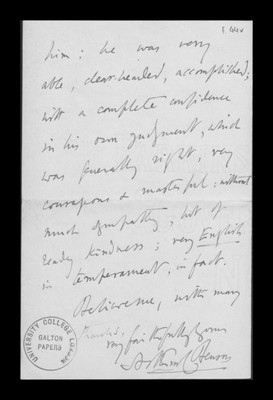 1 Nov
him: he was very
able, clear-headed, accomplished;
with a complete confidence
in his own judgment, which
was generally right, very
courageous & masterful: without
much sympathy, but of
ready kindness; very English
in temperament, in fact.
Believe me, with many
thanks,
very faithfully yours
Arthur C Benson
UNIVERSITY COLLEGE LONDON
GALTON
PAPERS